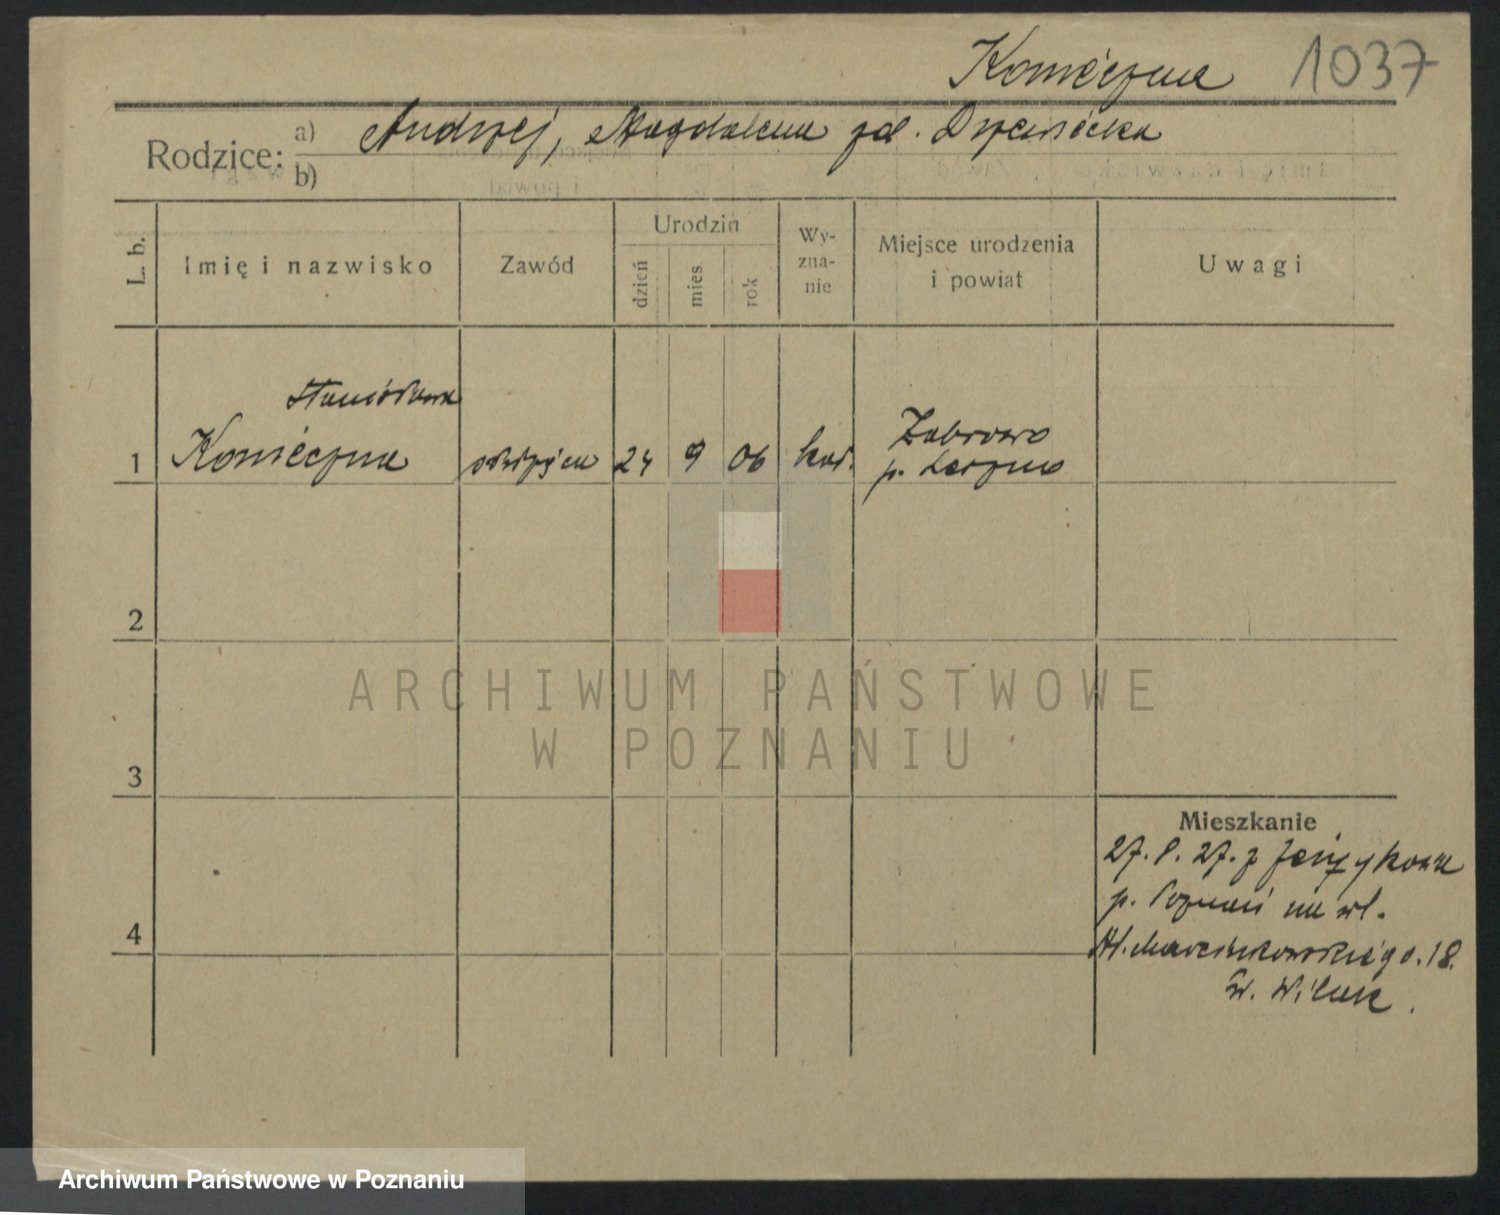 Konieczna 1037
Rodzice: a) Andrzej, Magdalena zd.
b)
L. b.
Imię i nazwisko
Zawód
Urodzin
dzień
mies
rok
Wy-
zna-
nie
Miejsce urodzenia
i powiat
Uwagi
Stanisława
1 Konieczna 24 9 06 kat.
Żabrowo
p.
2
3
4
Mieszkanie
27. 8. 27. z Jerzykowa
p. Poznań na wl.
Al. Marcinkowskiego. 18.
ARCHIWUM PAŃSTWOWE
W POZNANIU
Archiwum Państwowe w Poznaniu